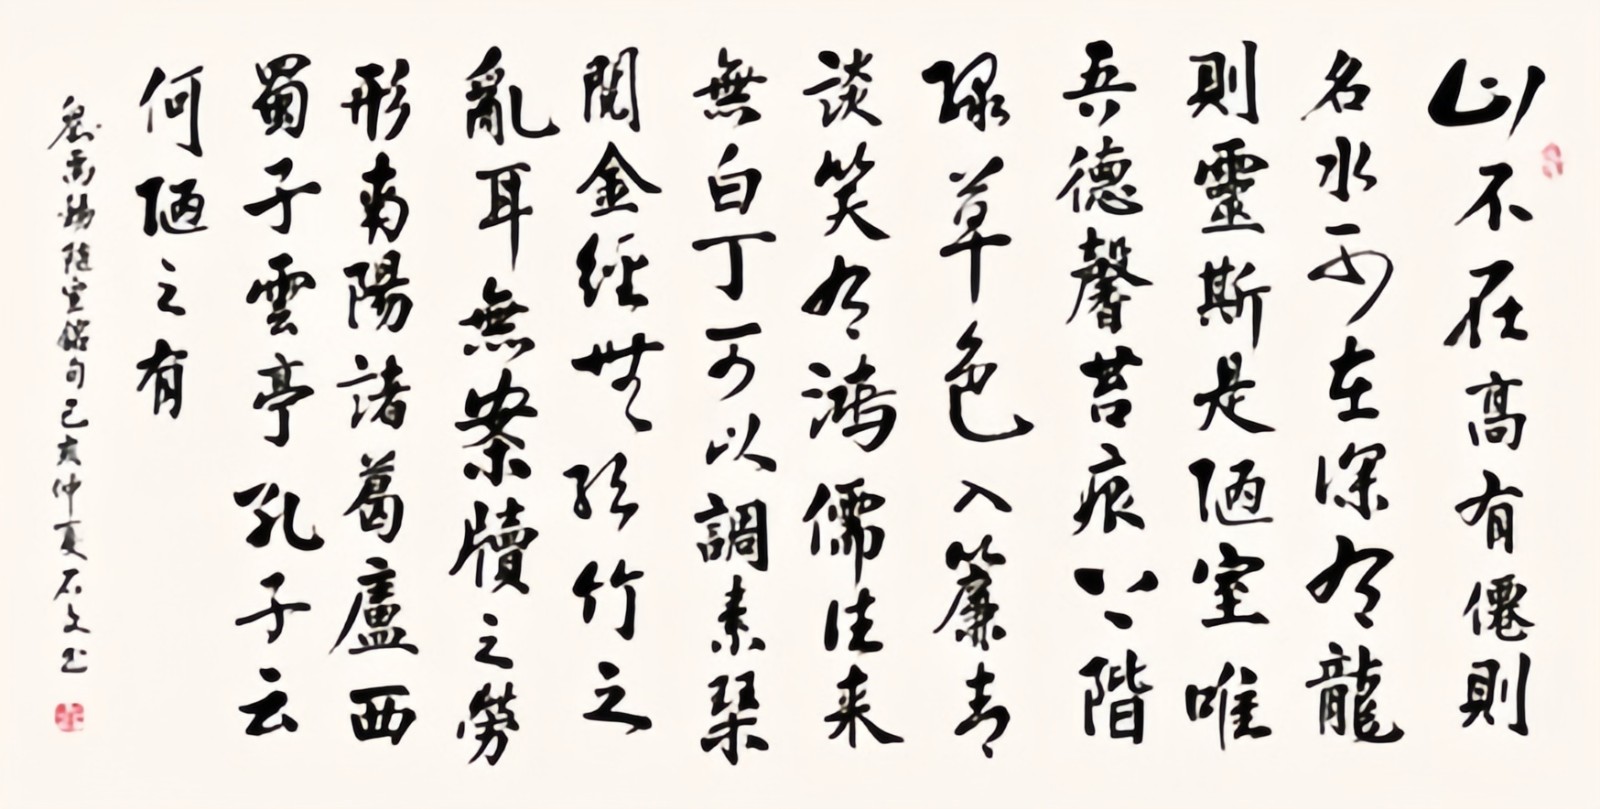 山不在高有僊則
名水不在深有龍
則靈斯是陋室唯
吾德馨苔痕上階
綠草色入簾青
談笑有鴻儒往来
無白丁可以調素琴
閱金經無絲竹之
亂耳無案牘之勞
形南陽諸葛廬西
蜀子雲亭孔子云
何陋之有
劉禹錫陋室銘句己亥仲夏石文书